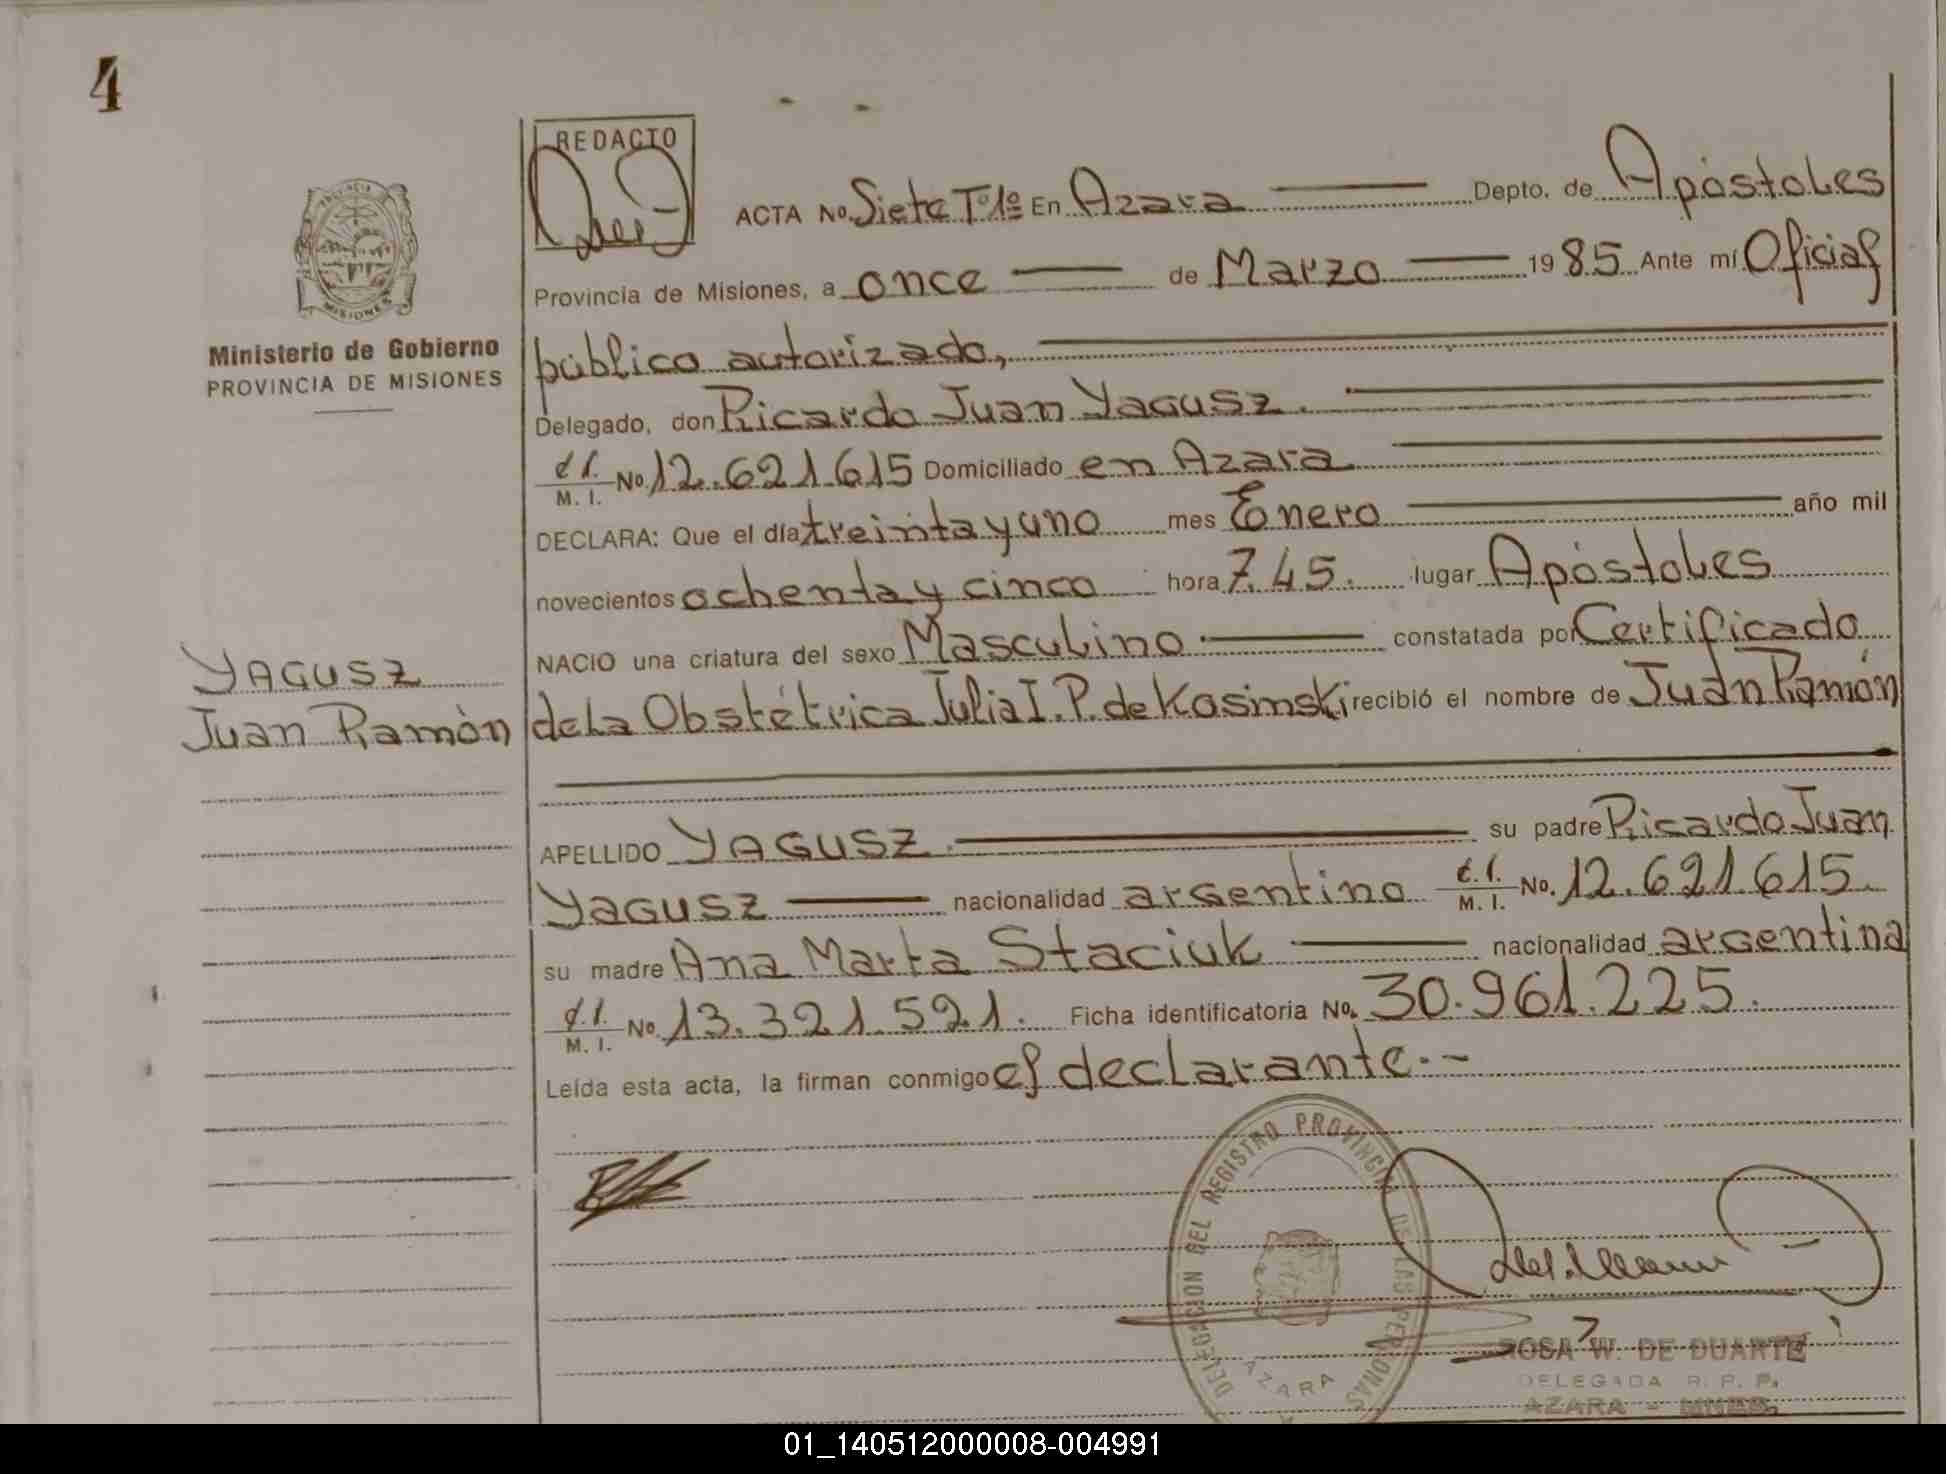 4
REDACTO
PROVINCIA
MISIONES
Ministerio de Gobierno
PROVINCIA DE MISIONES
ACTA No. Siete Tº1º En Azara Depto. de Apóstoles
Provincia de Misiones, a once de Marzo 1985 Ante mí Oficial
público autorizado,
Delegado, don Ricardo Juan Yagusz.
C.I. M. I. No. 12.621.615 Domiciliado en Azara
DECLARA: Que el día treinta y uno mes Enero año mil
novecientos ochenta y cinco hora 7.45. lugar Apóstoles
NACIO una criatura del sexo Masculino constatada por Certificado
de la Obstétrica Julia I. P. de Kosinski recibió el nombre de Juan Ramón
YAGUSZ
Juan Ramón
APELLIDO YAGUSZ su padre Ricardo Juan
Yagusz nacionalidad argentino C.I. M. I. No. 12.621.615
su madre Ana Marta Staciuk nacionalidad argentina
C.I. M. I. No. 13.321.521. Ficha identificatoria No. 30.961.225.
Leída esta acta, la firman conmigo el declarante.-
DELEGACION DEL REGISTRO PROVINCIAL DE LAS PERSONAS
AZARA
ROSA W. DE DUARTE
DELEGADA R. P. P.
AZARA - MNES.
01_140512000008-004991